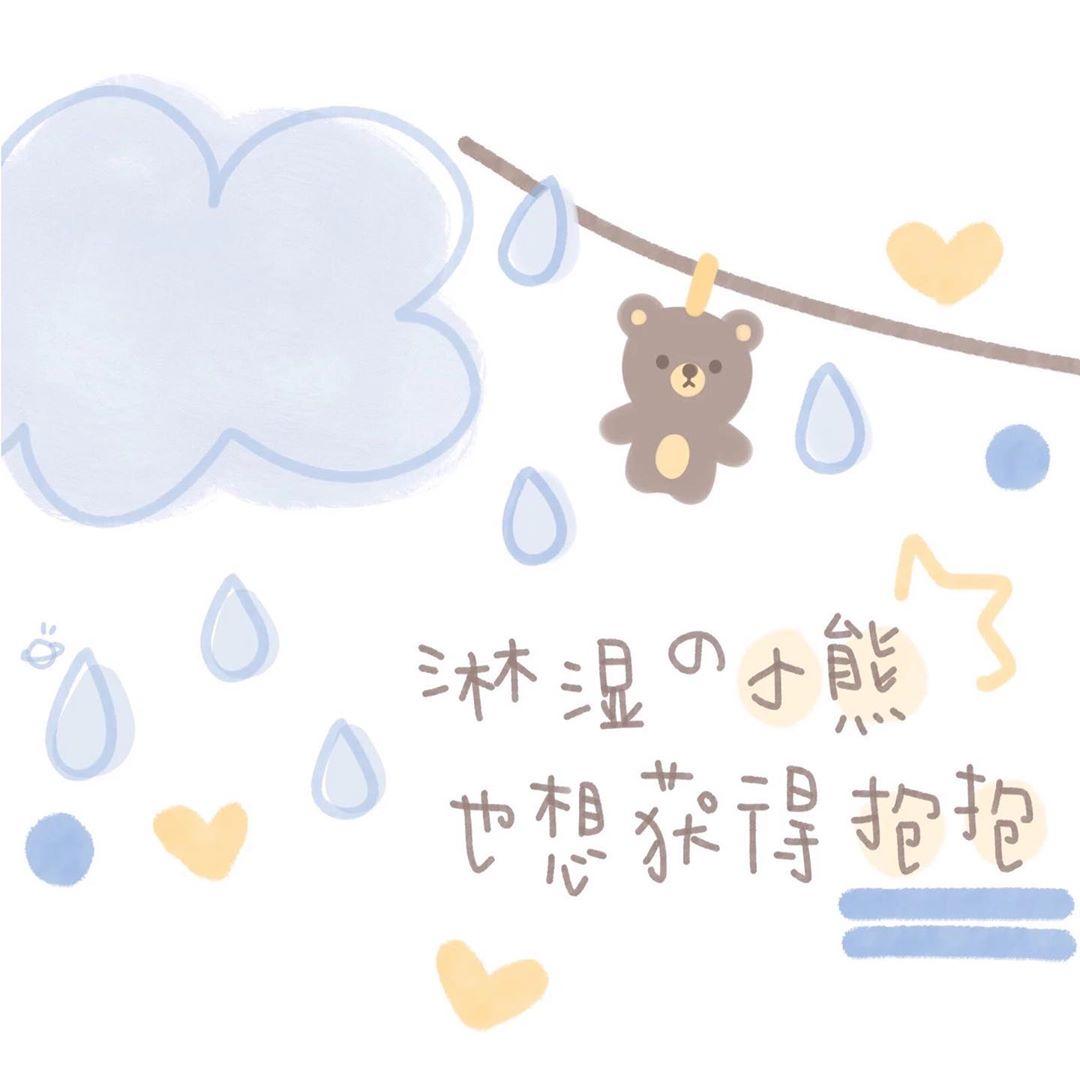 淋湿の小熊
也想获得抱抱